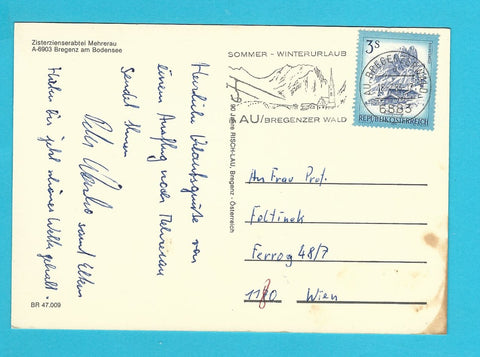 Zisterzienserabtei Mehrerau
A-6903 Bregenz am Bodensee
Herzliche Urlaubsgrüße von
einem Ausflug nach Mehrerau
sendet Ihnen
samt Eltern
Haben bis jetzt schönes Wetter gehabt.
BR 47.009
90 Jahre RISCH-LAU, Bregenz - Österreich
SOMMER - WINTERURLAUB
AU/BREGENZER WALD
3S
REPUBLIK ÖSTERREICH
6883
An Frau Prof.
Feltinek
Ferrog 48/7
Wien